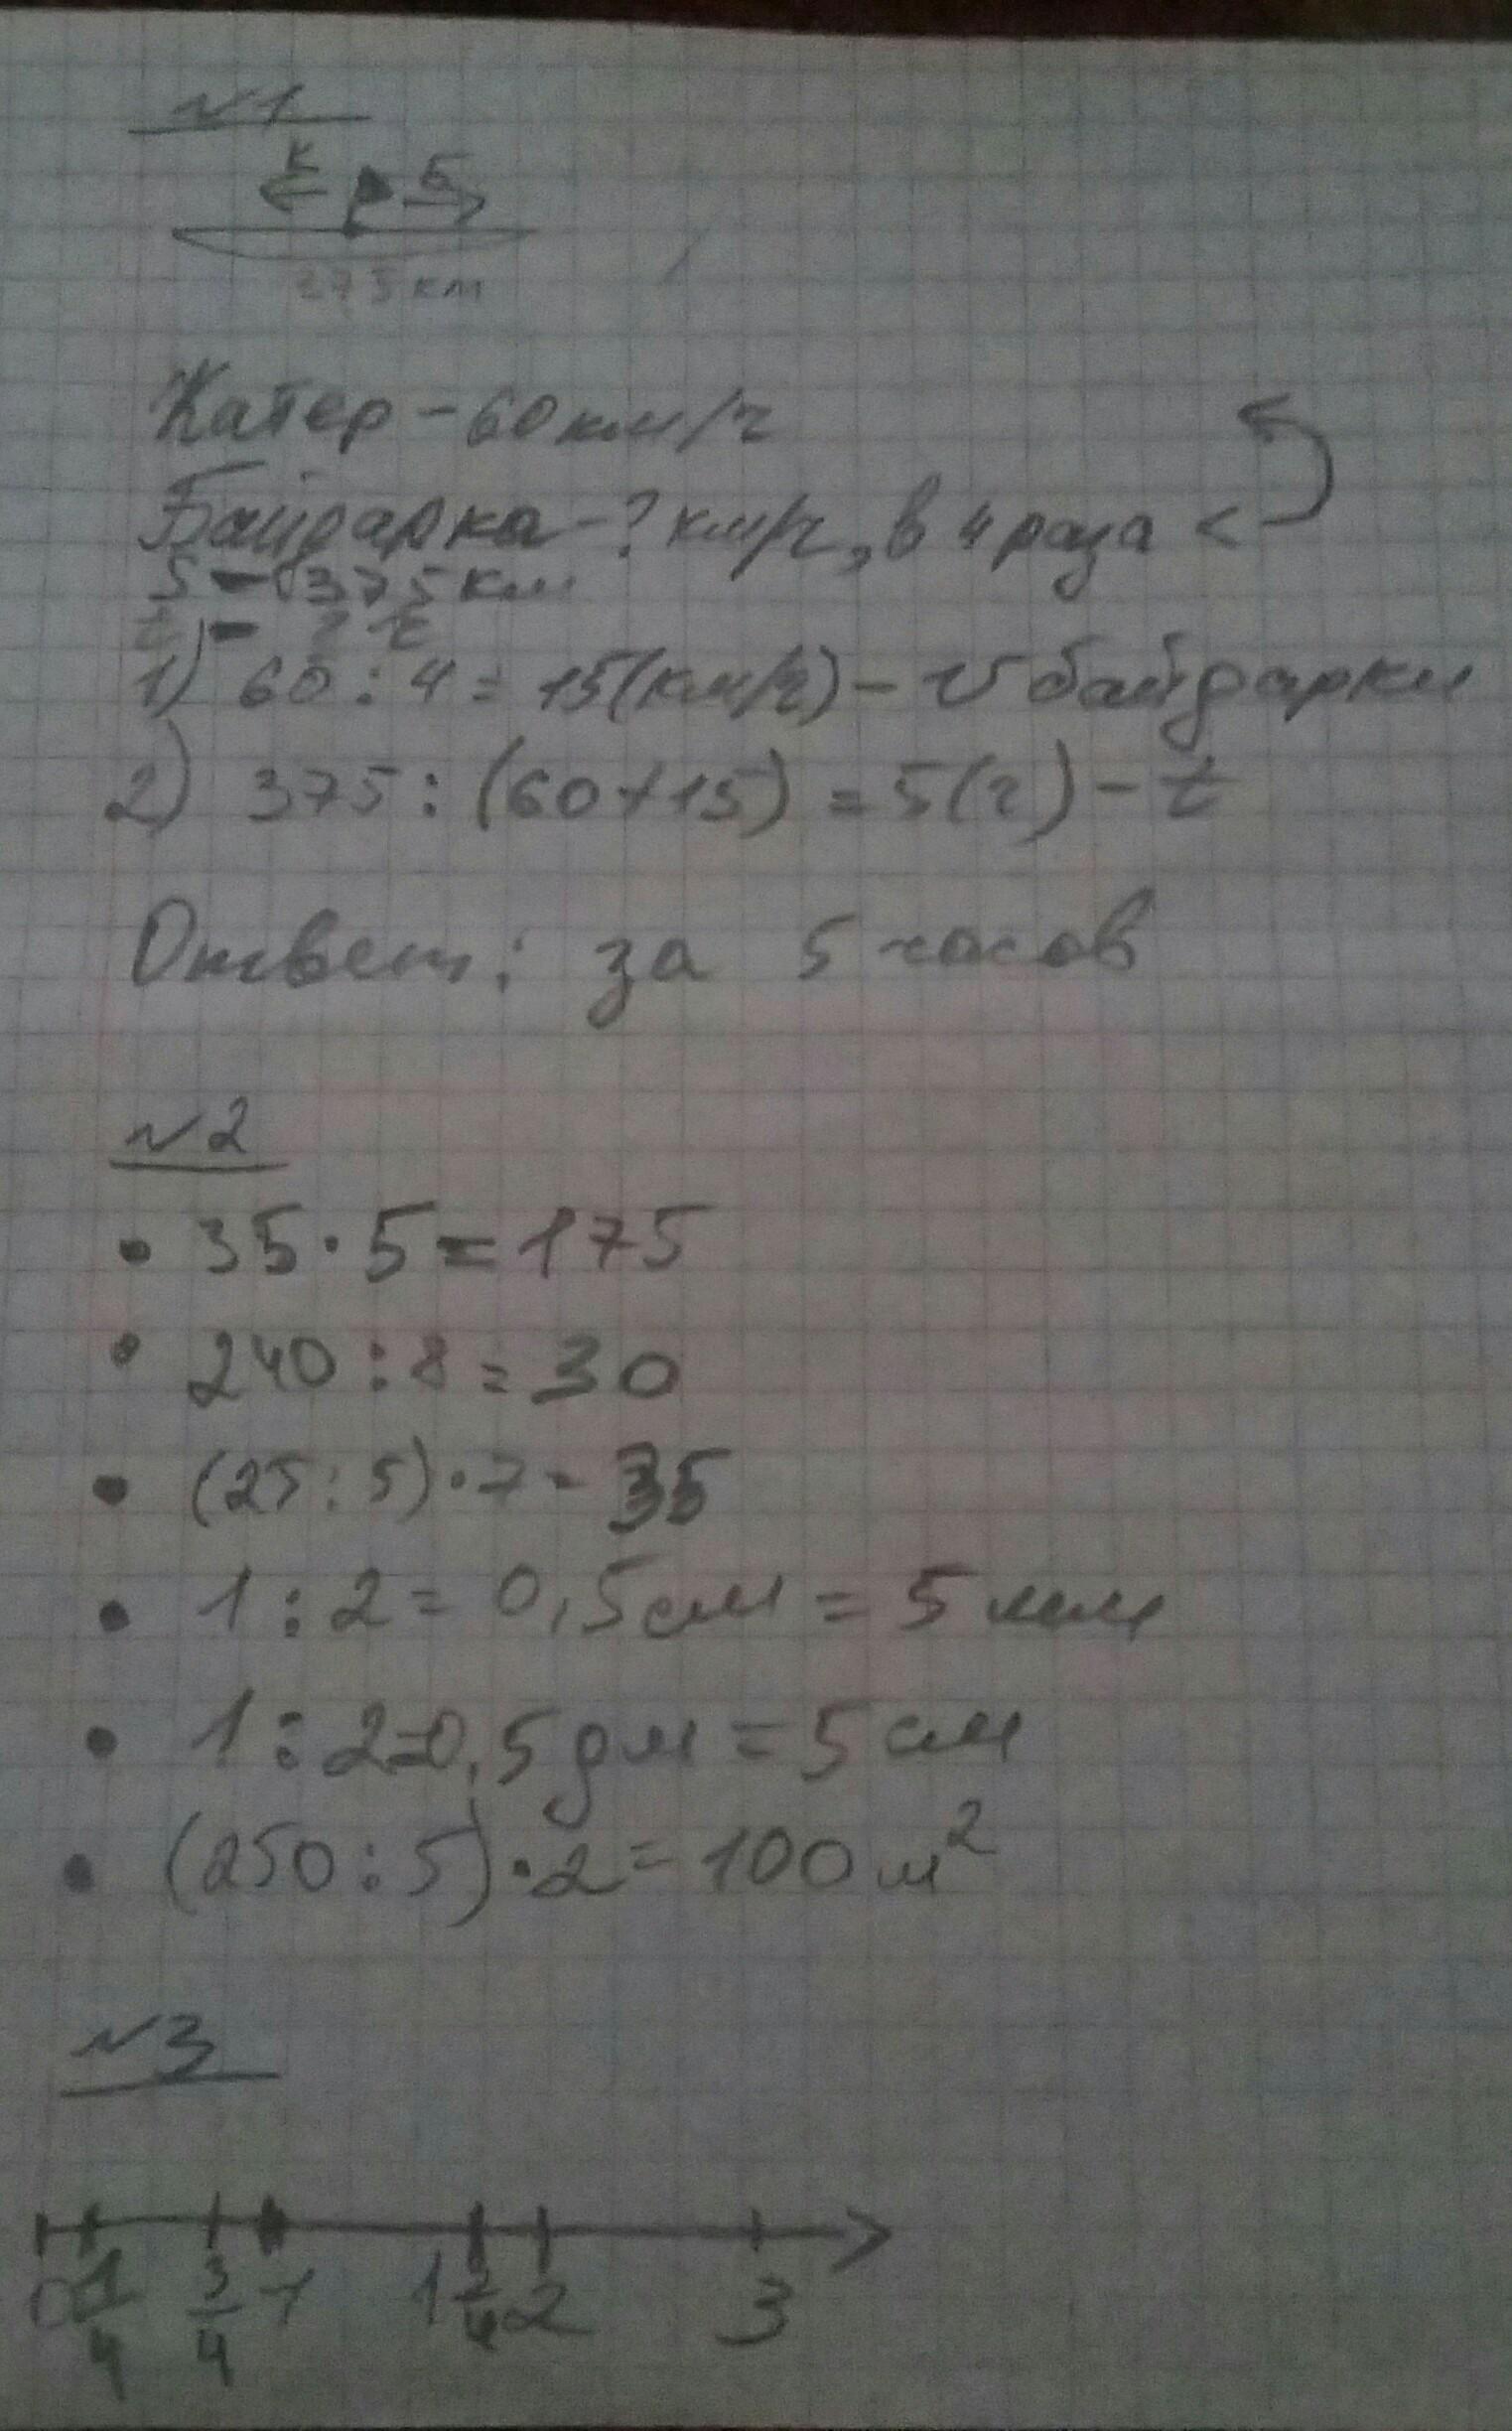 №1
К Б
375 км
Катер - 60 км/ч
Байдарка - ? км/ч, в 4 раза <
S - 375 км
t - ? ч
1) 60 : 4 = 15 (км/ч) - v байдарки
2) 375 : (60 + 15) = 5 (ч) - t
Ответ: за 5 часов
№2
• 35 · 5 = 175
• 240 : 8 = 30
• (25 : 5) · 7 = 35
• 1 : 2 = 0,5 см = 5 мм
• 1 : 2 = 0,5 дм = 5 см
• (250 : 5) · 2 = 100 м²
№3
0 1/4 3/4 1 1 3/4 2 3